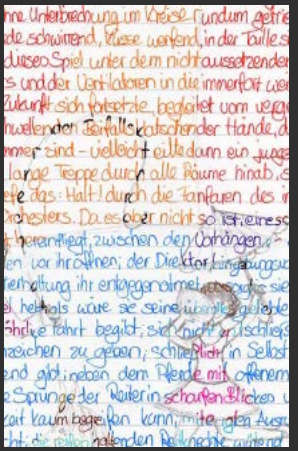 ne Unterbrechung im Kreise rundum getrie
de schwirrend, Küsse werfend, in der Taille s
dieses Spiel unter dem nicht aussetzenden
s und der Ventilatoren in die immerfort wei
Zukunft sich fortsetzte, begleitet vom verge
nwellenden Beifallsklatschen der Hände, d
mmer sind - vielleicht eilte dann ein junge
lange Treppe durch alle Räume hinab, s
efe das: Halt! durch die Fanfaren des i
Orchesters. Da es aber nicht so ist, eine sc
t hereinfliegt, zwischen den Vorhängen,
en vor ihr öffnen; der Direktor, hingebungsv
ierhaltung ihr entgegenatmet, vorsorglich sie
el hebt, als wäre sie seine über alles geliebte
ährliche Fahrt begibt; sich nicht entschließe
zeichen zu geben; schließlich in Selbst
end gibt; neben dem Pferde mit offenem
e Sprünge der Reiterin scharfen Blickes v
keit kaum begreifen kann; mit englischen Ausru
cht; die reifenhaltenden Reitknechte wütend